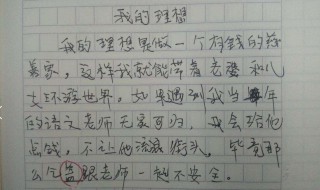 我的理想
我的理想是做一个有钱的慈
善家，这样我就能带着老婆和儿
女环游世界，如果遇到我当年
的语文老师无家可归，我会给他
点钱，不让他流浪街头，毕竟那
么个 跟老师一起不安全。